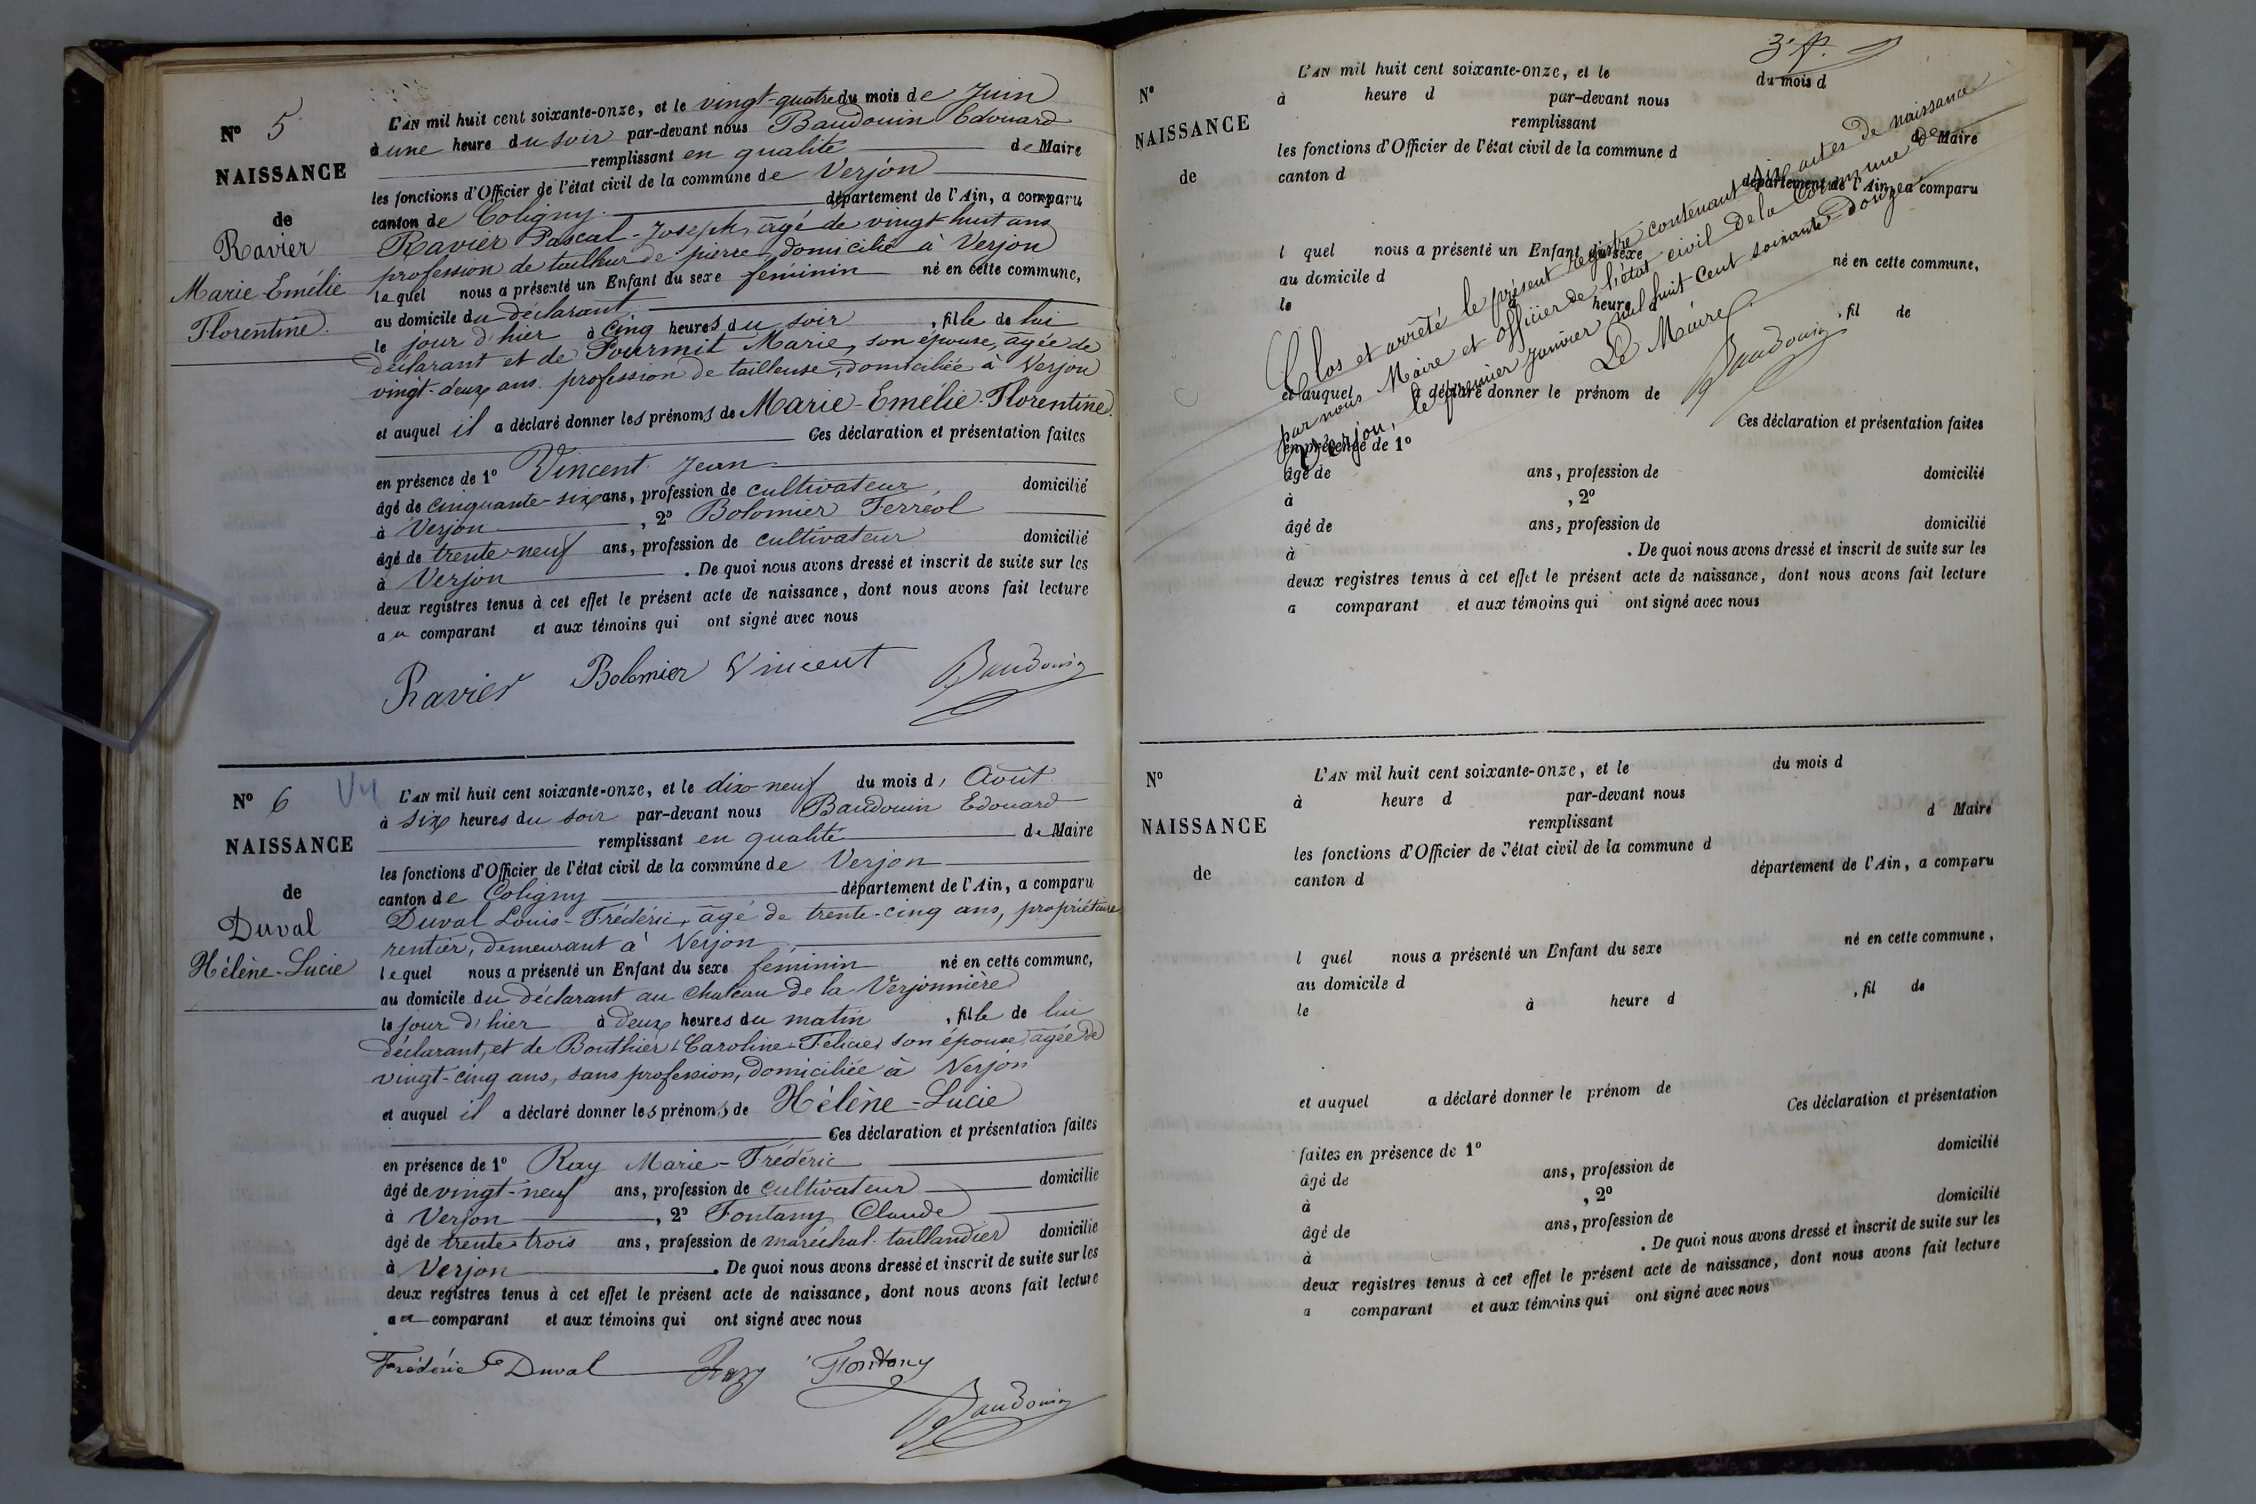 N° 5
NAISSANCE
de
Ravier
Marie-Emélie
Florentine.
L'AN mil huit cent soixante-onze, et le vingt-quatre du mois de Juin
à une heure du soir par-devant nous Baudouin Edouard
remplissant en qualité de Maire
les fonctions d'Officier de l'état civil de la commune de Verjon
canton de Coligny département de l'Ain, a comparu
Ravier Pascal-Joseph, âgé de vingt-huit ans
profession de tailleur de pierre, domicilié à Verjon
lequel nous a présenté un Enfant du sexe feminin né en cette commune,
au domicile du déclarant,
le jour d'hier à cinq heures du soir, fille de lui
déclarant et de Fourmit Marie, son épouse, agée de
vingt-deux ans. profession de tailleuse, domiciliée à Verjon
et auquel il a déclaré donner les prénoms de Marie-Emélie-Florentine.
Ces déclaration et présentation faites
en présence de 1° Vincent Jean
âgé de cinquante-six ans, profession de cultivateur domicilié
à Verjon, 2° Bolomier Ferréol
âgé de trente-neuf ans, profession de cultivateur domicilié
à Verjon. De quoi nous avons dressé et inscrit de suite sur les
deux registres tenus à cet effet le présent acte de naissance, dont nous avons fait lecture
au comparant et aux témoins qui ont signé avec nous
Ravier Bolomier Vincent Baudouin
N° 6
NAISSANCE
de
Duval
Hélène-Lucie
L'AN mil huit cent soixante-onze, et le dix-neuf du mois d'Août
à six heures du soir par-devant nous Baudouin Edouard
remplissant en qualité de Maire
les fonctions d'Officier de l'état civil de la commune de Verjon
canton de Coligny département de l'Ain, a comparu
Duval Louis-Frédéric, âgé de trente-cinq ans, propriétaire
rentier, demeurant à Verjon,
lequel nous a présenté un Enfant du sexe féminin né en cette commune,
au domicile du déclarant au chateau de la Verjonnière
le jour d'hier à deux heures du matin, fille de lui
déclarant, et de Bouthier Caroline-Felicie, son épouse, agée de
vingt-cinq ans, sans profession, domiciliée à Verjon
et auquel il a déclaré donner les prénoms de Hélène-Lucie
Ces déclaration et présentation faites
en présence de 1° Ray Marie-Fréderic
âgé de vingt-neuf ans, profession de cultivateur domicilié
à Verjon, 2° Fontany Claude
âgé de trente-trois ans, profession de maréchal-taillandier domicilié
à Verjon. De quoi nous avons dressé et inscrit de suite sur les
deux registres tenus à cet effet le présent acte de naissance, dont nous avons fait lecture
au comparant et aux témoins qui ont signé avec nous
Frédéric Duval Ray Fontany
Baudouin
N°
NAISSANCE
de
L'AN mil huit cent soixante-onze, et le du mois d
à heure d par-devant nous
remplissant d Maire
les fonctions d'Officier de l'état civil de la commune d
canton d département de l'Ain, a comparu
l quel nous a présenté un Enfant du sexe né en cette commune,
au domicile d
le à heure d, fil de
et auquel a déclaré donner le prénom de
Ces déclaration et présentation faites
en présence de 1°
âgé de ans, profession de domicilié
à, 2°
âgé de ans, profession de domicilié
à. De quoi nous avons dressé et inscrit de suite sur les
deux registres tenus à cet effet le présent acte de naissance, dont nous avons fait lecture
a comparant et aux témoins qui ont signé avec nous
Clos et arrêté le présent registre contenant six actes de naissance
par nous Maire et officier de l'état civil de la Commune de
Verjon, le premier janvier mil huit cent soixante-douze
Le Maire
Baudouin
N°
NAISSANCE
de
L'AN mil huit cent soixante-onze, et le du mois d
à heure d par-devant nous
remplissant d Maire
les fonctions d'Officier de l'état civil de la commune d
canton d département de l'Ain, a comparu
l quel nous a présenté un Enfant du sexe né en cette commune,
au domicile d
le à heure d, fil de
et auquel a déclaré donner le prénom de
Ces déclaration et présentation
faites en présence de 1° domicilié
âgé de ans, profession de
à, 2° domicilié
âgé de ans, profession de
à. De quoi nous avons dressé et inscrit de suite sur les
deux registres tenus à cet effet le présent acte de naissance, dont nous avons fait lecture
a comparant et aux témoins qui ont signé avec nous